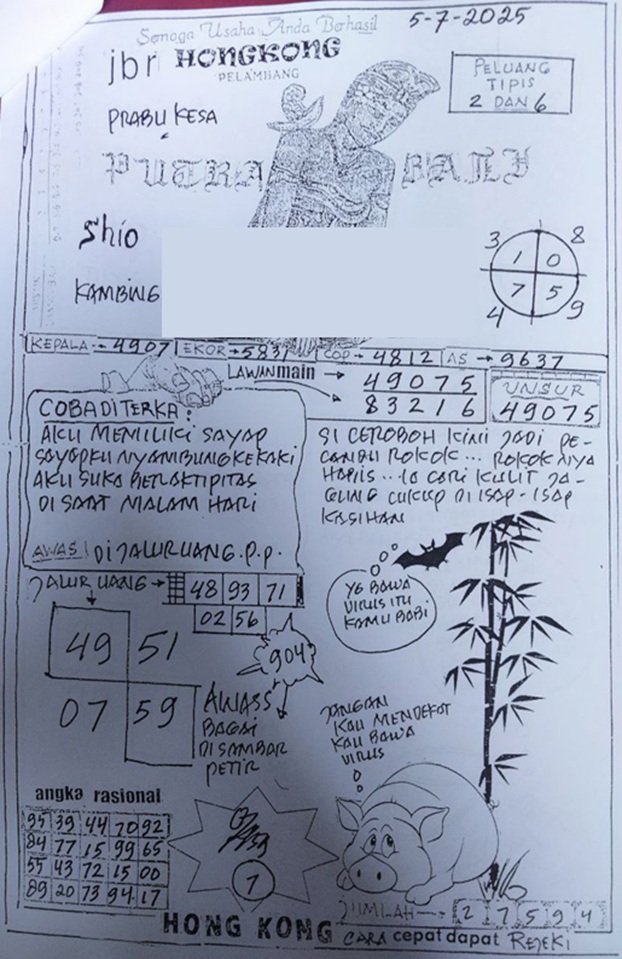 Semoga Usaha Anda Berhasil
5-7-2025
jbr HONGKONG
PELAMBANG
PELUANG
TIPIS
2 DAN 6
PRABU KESA
PUTRA BALI
Shio
KAMBING
3 8
1 0
7 5
4 9
KEPALA → 4907 EKOR → 5831 COP → 4812 AS → 9637
LAWAN main → 49075
83216
UNSUR
49075
COBA DITERKA:
AKU MEMILIKI SAYAP
SAYAPKU NYAMBUNG KE KAKI
AKU SUKA BERAKTIPITAS
DI SAAT MALAM HARI
AWAS! DI JALUR UANG. P.P.
SI CEROBOH KINI JADI PE-
CANDU ROKOK... ROKOK NYA
HABIS... IA CARI KULIT JA-
GUNG CUKUP DI ISAP-ISAP
KASIHAN
JALUR UANG → 48 93 71
02 56
49 51
07 59
904
AWASS
BAGAI
DISAMBAR
PETIR
YG BAWA
VIRUS ITU
KAMU BABI
JANGAN
KAU MENDEKAT
KAU BAWA
VIRUS
angka rasional
95 39 44 70 92
84 77 15 99 65
55 43 72 15 00
89 20 73 94 17
7
JUMLAH → 2 7 5 9 4
HONG KONG CARA cepat dapat REJEKI